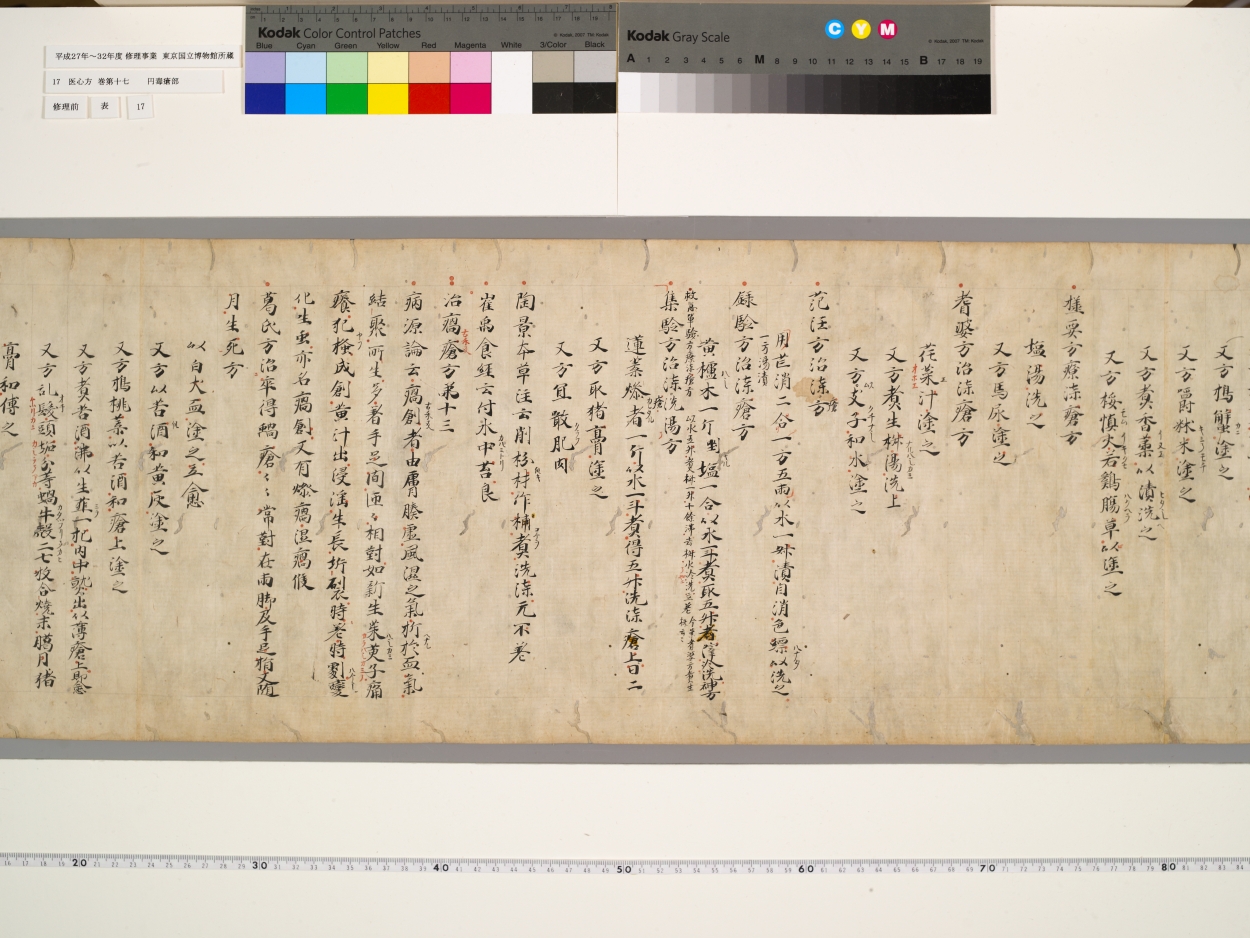 平成27年～32年度 修理事業 東京国立博物館所蔵
17 医心方 巻第十七 円毒瘡部
修理前 表 17
Kodak Color Control Patches
Blue Cyan Green Yellow Red Magenta White 3/Color Black
© Kodak, 2007 TM: Kodak
Kodak Gray Scale
C Y M
© Kodak, 2007 TM: Kodak
A 1 2 3 4 5 6 M 8 9 10 11 12 13 14 15 B 17 18 19
又方搗蟹塗之
又方爵牀米塗之
又方煮香薷以漬洗之
又方挼慎火若鷄腸草以塗之
極要方療漆瘡方
塩湯洗之
又方馬尿塗之
耆婆方治漆瘡方
荏菜汁塗之
又方煮生椒湯洗上
又方以芡子和水塗之
范汪方治漆瘡方
用芒消二合一方五両以水一升漬自消色驃以洗之
一方湯漬
録驗方治漆瘡方
黄櫨木一斤塩一合以水一斗煮取五升
集驗方治漆瘡洗湯方
蓮葉燥者一斤以水一斗煮得五升洗漆瘡上日二
又方取猪膏塗之
又方宜噉肥肉
陶景本草注云削杉材作柿煮洗漆元不差
崔禹食経云付水中苔良
治瘑瘡方第十三
病源論云瘑創者由膚腠虚風湿之氣折於血氣
結聚所生多著手足間迊々相對如新生茱萸子痛
癢犯搔成創黄汁出浸淫生長拆裂時差時劇變
化生虫亦名瘑創又有燥瘑湿瘑候
葛氏方治卒得瘑瘡々常對在兩脚及手足指又随
月生死方
以白犬血塗之立愈
又方以苦酒和黄灰塗之
又方搗桃葉以苦酒和瘡上塗之
又方煮苦酒沸以生韮一把内中熟出以薄瘡上即愈
又方乱髮頭垢分等蝸牛殻二七枚合燒末臈月猪
膏和傅之
20 30 40 50 60 70 80